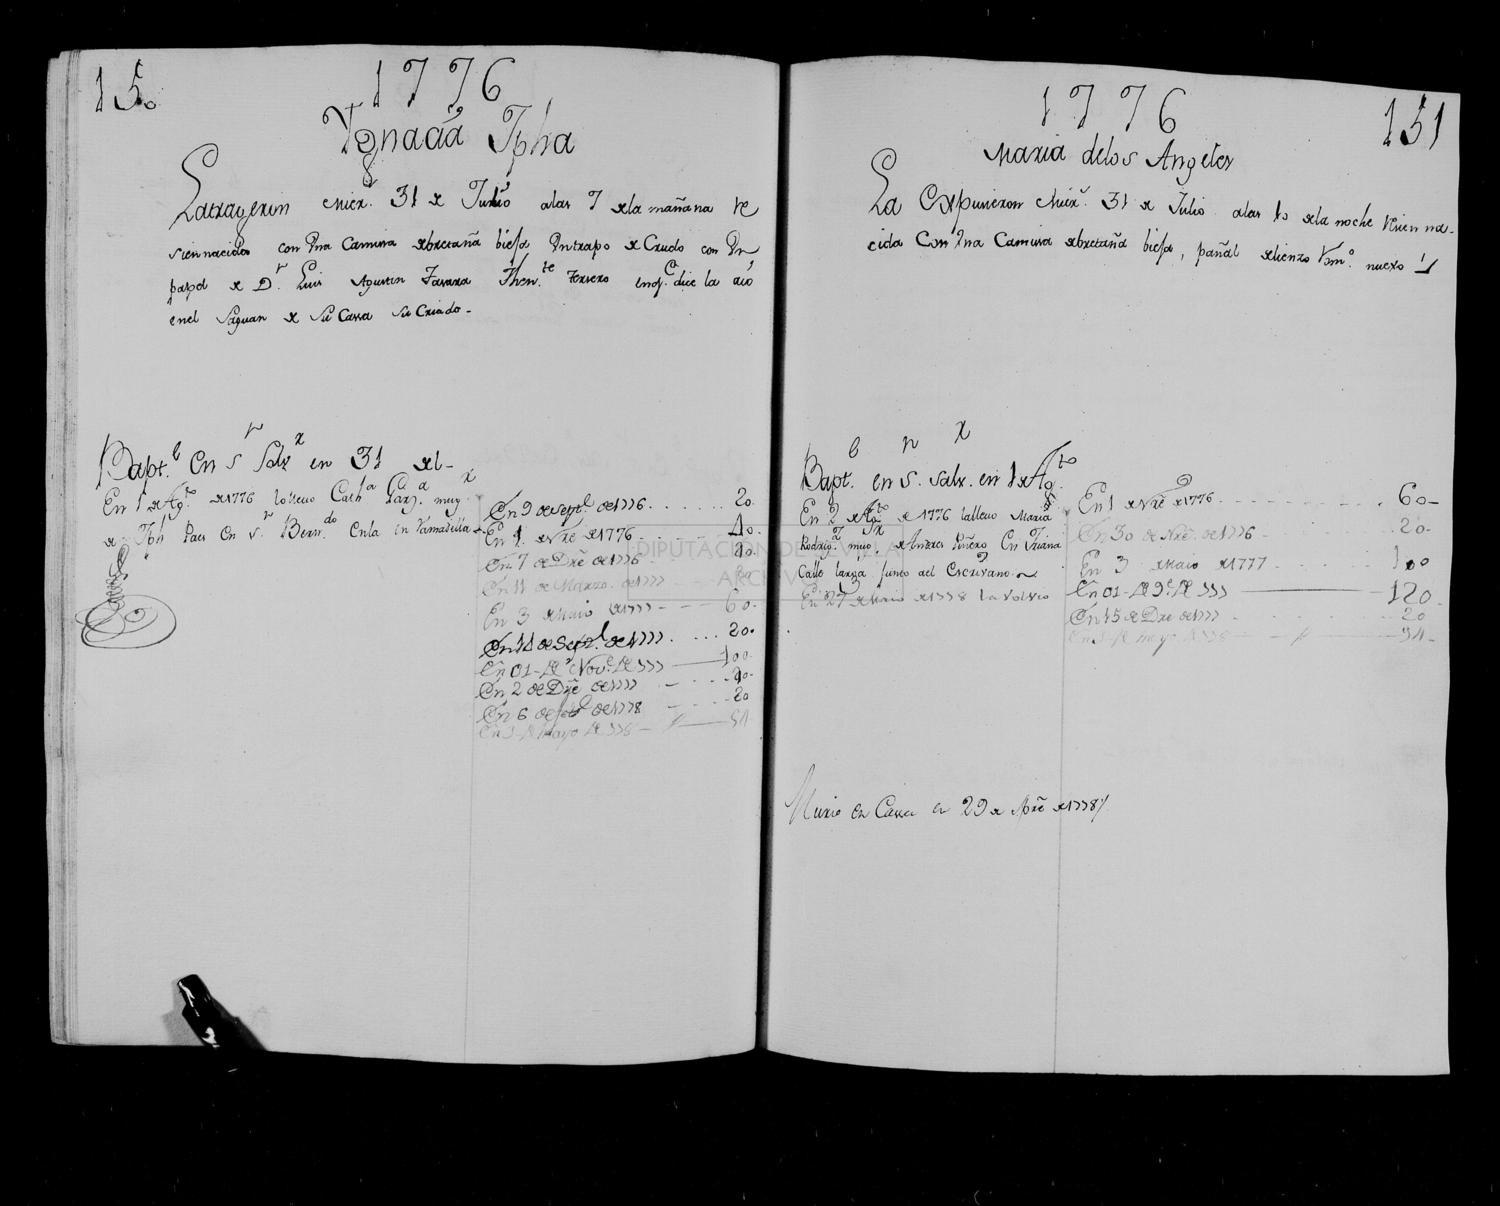 150
1776
Ygnacia Jpha
La traxeron Mierˢ. 31 de Julio a las 7 de la mañana re
sien nacida con Una Camisa de bretaña biefa Un trapo de Crudo con Un
papel de Dⁿ. Luis Agustin Thenᵗᵉ. en q. dice la
en el Saguan de Su Cassa Su Criado.
Baptᵒ. En S. Salvʳ en 31 del
En 1 de Agᵗᵒ de 1776 la llevo Cathᵃ muyᵉʳ
de Jph Paes En Sⁿ. Bernᵈᵒ. En la
En 9 de Septᵉ. de 1776. . . . . . . 20
En 1. de Nvre de 1776 . . . . . . 40.
En 7 de Dre de 1776
En 11 de Marzo. de 1777
En 3 de Maio de 1777 — — 60.
En 11 de Septᵉ. de 1777. . . . 20.
En 01 de Novᵉ. de 777 — 100
En 2 de Dre de 1777 — . . .
En 6 de febᵒ de 1778 — . . . 20
En 3 de Mayo de 778 —
151
1776
Maria de los Angeles
La Expusieron Mierˢ. 31 de Julio a las 10 de la noche resien na-
cida Con Una Camisa de bretaña biefa, pañal de lienzo nuevo
Baptᵒ. en S. Salvʳ. en 1 de Agᵗᵒ.
En 2 de Agᵗᵒ de 1776 la llevo Maria
Rodrigᶻ. muyᵉʳ. de Andres Piñero En Triana
Calle larga Junto del Escrivano.
En 27 de Maio de 1778 la volvio
En 1 de Nvre de 1776. . . . . . . 60
En 30 de Nre. de 1776 . . . . . 20
En 3 de Maio de 1777 . . . . . 100
En 01 de 9ᵉ de 777 — 120
En 15 de Dre de 1777 . . . . 20
En 3 de mayo de 778 —
Murio en Cassa en 29 de de 1778